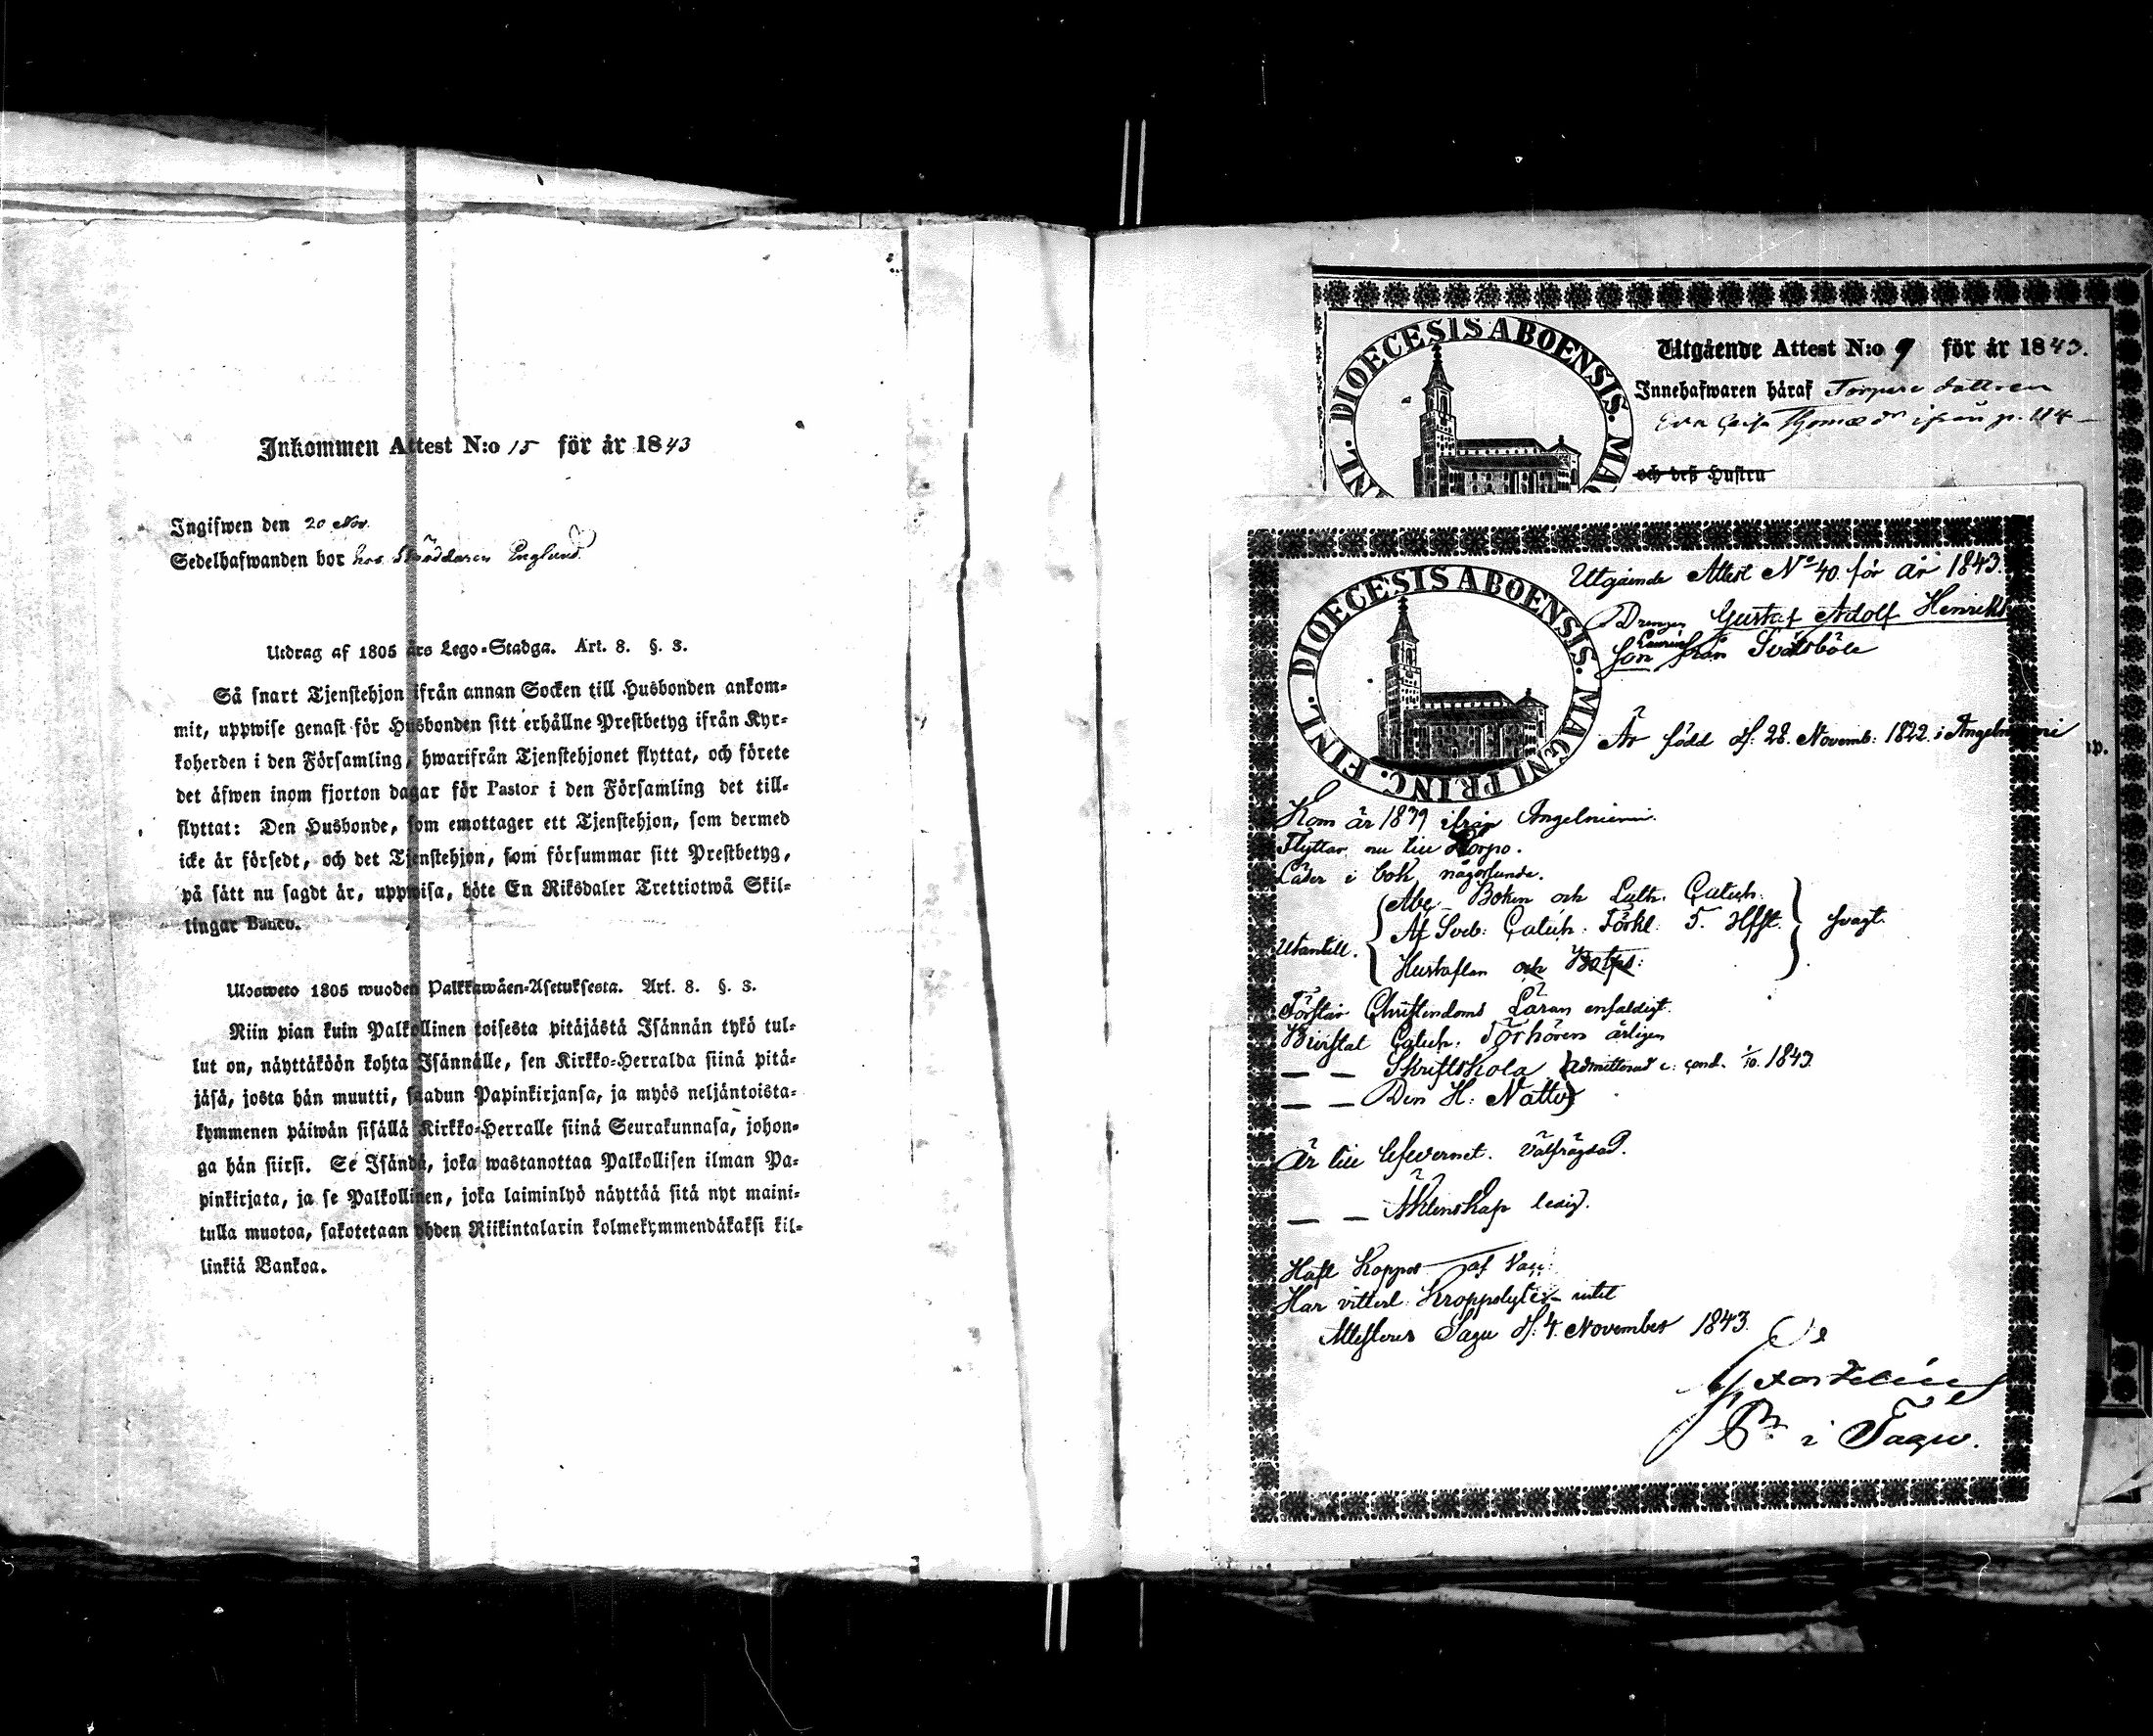 Inkommen Attest N:o 15 för år 1843
Ingifwen den 20 Nov.
Sedelhafwanden bor hos Skräddaren Englund.
Utdrag af 1805 års Lego-Stadga. Art. 8. §. 3.
Så snart Tjenstehjon ifrån annan Socken till Husbonden ankom-
mit, uppwise genast för Husbonden sitt erhållne Prestbetyg ifrån Kyr-
koherden i den Församling, hwarifrån Tjenstehjonet flyttat, och förete
det äfwen inom fjorton dagar för Pastor i den Församling det till-
flyttat: Den Husbonde, som emottager ett Tjenstehjon, som dermed
icke är försedt, och det Tjenstehjon, som försummar sitt Prestbetyg,
på sätt nu sagdt är, uppwisa, böte En Riksdaler Trettiotwå Skil-
lingar Banco.
Ulosweto 1805 wuoden Palkkawäen-Asetuksesta. Art. 8. §. 3.
Niin pian kuin Palkollinen toisesta pitäjästä Isännän tykö tul-
lut on, näyttäköön kohta Isännälle, sen Kirkko-Herralda siinä pitä-
jäsä, josta hän muutti, saadun Papinkirjansa, ja myös neljäntoista-
kymmenen päiwän sisällä Kirkko-Herralle siinä Seurakunnasa, johon-
ga hän siirsi. Se Isändä, joka wastanottaa Palkollisen ilman Pa-
pinkirjata, ja se Palkollinen, joka laiminlyö näyttää sitä nyt maini-
tulla muotoa, sakotetaan yhden Riikintalarin kolmekymmendäkaksi kil-
linkiä Bankoa.
DIOECESIS ABOENSIS. MAG FINL.
Utgående Attest N:o 9 för år 1843.
Innehafwaren häraf Torpare dottren
Eva Caisa Thomædr ifrån p. 114
och deß Hustru
DIOECESIS ABOENSIS. MAGNI PRINC. FINL.
Utgående Attest No 40. för år 1843.
Drengen Gustaf Adolf Henriks
son från Svartsböle
Är född d: 28. Novemb: 1822. i Angelniemi
Kom år 1839 ifrån Angelniemi.
Flyttar nu till Korpo.
Läser i bok någorlunda.
Abc-Boken och Luth. Catech:
Utantill. Af Sveb: Catech: Förkl: 5. Hfst. svagt.
Hustaflan och
Förstår Christendoms Läran enfaldigt.
Bivistat Catech: Förhören årligen
— — Skriftskola (admitterad c: cond. 1/10. 1843.
— — Den H: Nattv)
Är till lefvernet. välfrägdad.
— — Äktenskap ledig.
Haft Koppor — af Vacc:
Har vitterl: Kroppslyten intet
Attesteras Sagu d: 4. November 1843.
i Sagu.